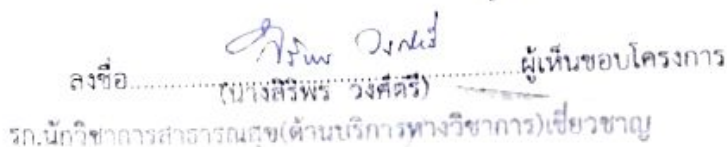 ลงชื่อ..........ศิริพร วงศ์ศรี..........ผู้เห็นชอบโครงการ
(นางสิริพร วงศ์ศรี)
รก.นักวิชาการสาธารณสุข(ด้านบริการทางวิชาการ)เชี่ยวชาญ